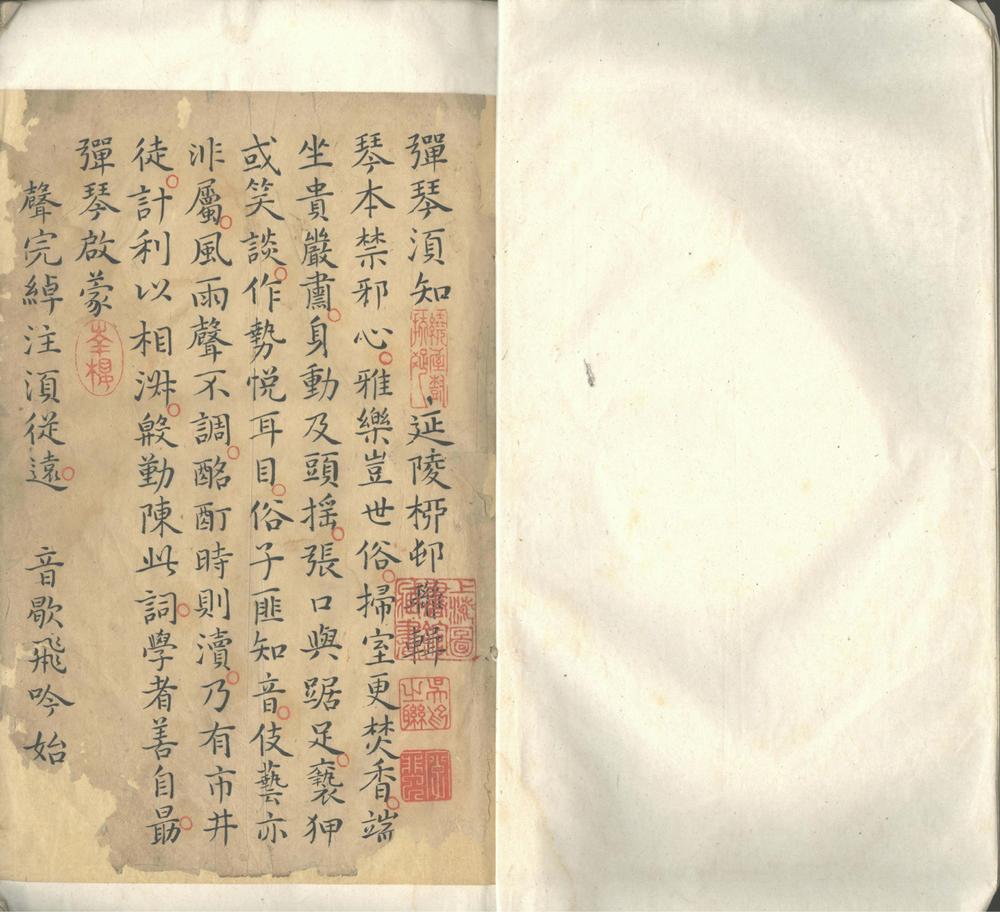 彈琴須知 延陵栁邨聯輯
琴本禁邪心雅樂豈世俗掃室更焚香端
坐貴嚴肅身動及頭摇張口與踞足褻狎
或笑談作勢悦耳目俗子匪知音伎藝亦
非屬風雨聲不調酩酊時則瀆乃有市井
徒計利以相淑殷勤陳此詞學者善自勗
彈琴啟蒙
聲完綽注須從遠 音歇飛吟始